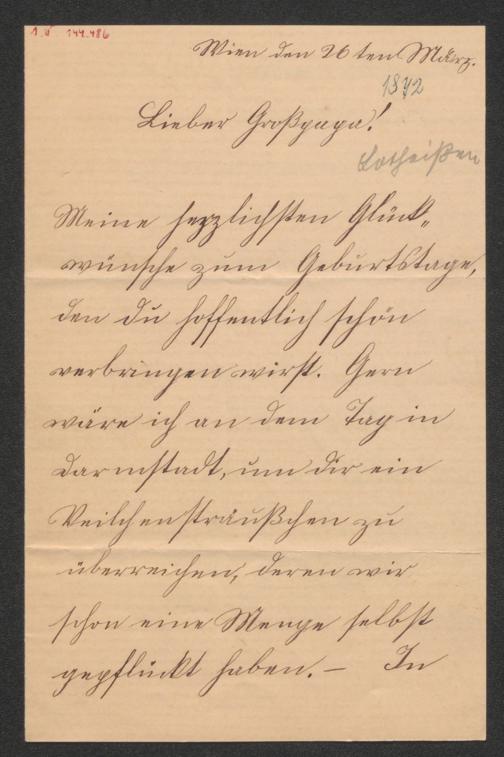 1. V 144.486
Wien den 26ten März.
1872
Lieber Großpapa!
Lotheißen
Meine herzlichsten Glück„
wünsche zum Geburtstage,
den du hoffentlich schön
verbringen wirst. Gern
wäre ich an dem Tag in
Darmstadt, um dir ein
Veilchensträußchen zu
überreichen, deren wir
schon eine Menge selbst
gepflückt haben. – In